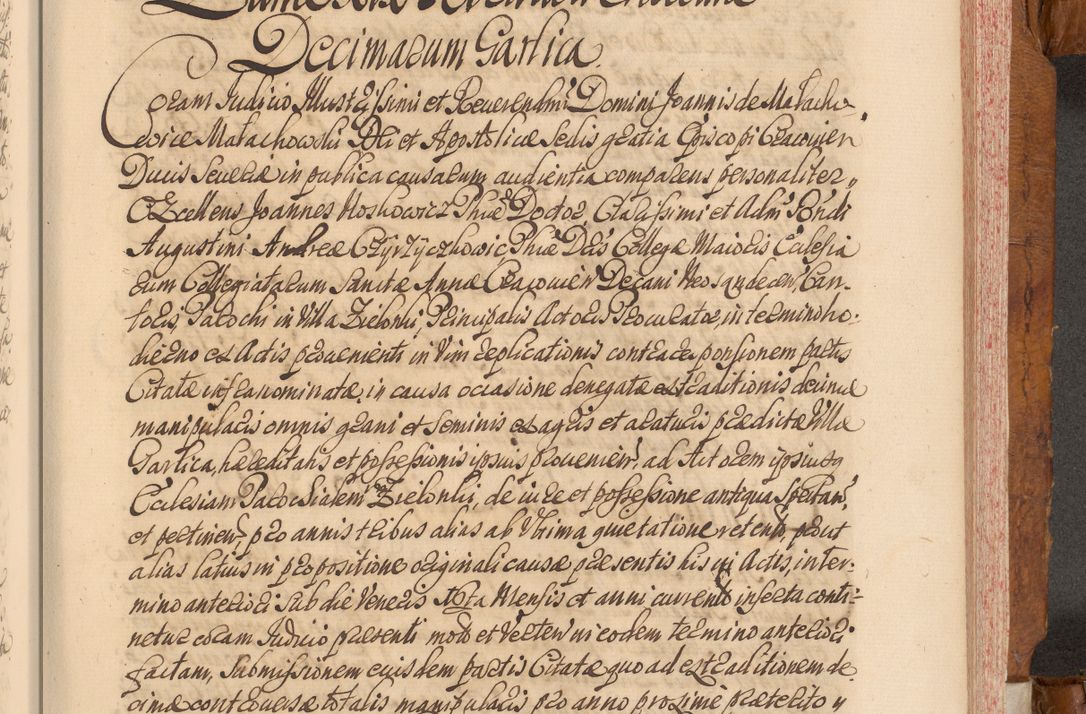 Decimarum Garlica.
Coram Judicio Illustrissimi et Reverendmi Domini Joannis de Małacho-
wice Małachowski Dei et Apostolicæ Sedis gratia Episcopi Cracovien
Ducis Severiæ in publica causarum audientia comparens personaliter
Excellens Joannes Hoskowicz Phiæ Doctor, Clarissimi et Admr Rndi
Augustini Andreæ Czyrzyczkowic, Phiæ Dris Collegæ Maioris Ecclesia
rum Collegiatarum Sanctæ Annæ Cracovien Decani Neosandecen, Can-
toris, Parochi in Villa Zielonki Principalis Actoris Procurator, in termino ho-
dierno ex Actis provenienti in vim replicationis contra responsionem partis
Citatæ infranominatæ, in causa occasione denegatæ extraditionis decimæ
manipularis omnis grani et seminis ex agris et araturis prædictæ Villæ
Garlica, hæreditatis et possessionis ipsius provenien, ad Actorem ipsiusq
Ecclesiam Parochialem Zielonki, de iure et possessione antiqua spectan,
et pertinen, pro annis tribus alias ab ultima quietatione retent, prout
alias latius in propositione originali causæ præsentis hisce in Actis, in ter-
mino anteriori sub die Veneris Mensis et anni current inserta conti-
netur coram Judicio præsenti modo et verten in eodem termino anteriori
factam, submissionem eiusdem partis Citatæ quo ad extraditionem de
cimæ controversæ totalis manipularis pro anno proxime præterito